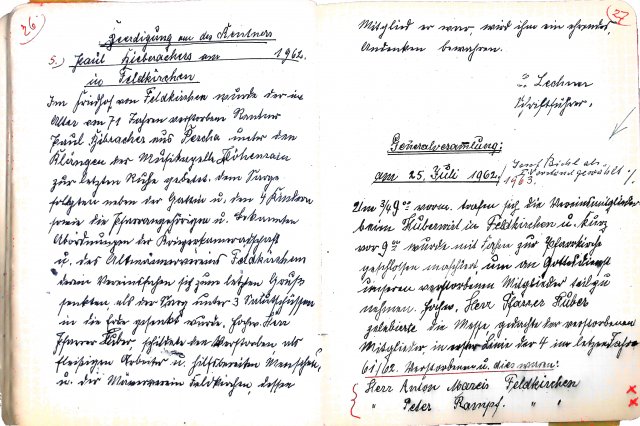 26
Beerdigung von des Rentners
5.) Paul Hieberachers am 1962.
in Feldkirchen
Im Friedhof von Feldkirchen wurde der im
Alter von 71 Jahren verstorben Rentner
Paul Hieberacher aus Percha unter den
Klängen der Musikkapelle Höhenrain
zur letzten Ruhe gebettet. dem Sarge
folgten neben der Gattin u. den 4 Kindern
sowie die Pfarrangehörigen u. bekannten
Abordnungen der Kriegerkameradschaft
u. des Altmännervereins Feldkirchen
deren Vereinsfahnen sich zum letzten Gruß
senkten als der Sarg unter 3 Salutschüssen
in die Erde gesenkt wurde. Hochw. Herr
Pfarrer Huber, schilderte den Verstorben als
fleißigen Arbeiter u. hilfsbereiten Menschen,
u. der Männerverein Feldkirchen, dessen
27
Mitglied er war, wird ihm ein ehrendes
Andenken bewahren.
Lechner
Schriftführer.
Generalversamlung:
am 25. Juli 1962. / Josef Bichl als
Vorstand gewählt
1963.
Um 3/4 9 Uhr vorm. trafen sich die Vereinsmitglieder
beim Huberwirt in Feldkirchen u. kurz
vor 9 Uhr wurde mit Fahne zur Pfarrkirche
geschlossen marschiert um am Gottesdienst
unseren verstorbenen Mitglieder teilzu
nehmen. Hochw. Herr Pfarrer Huber
zelebierte die Messe, gedachte der verstorbenen
Mitglieder in erster Linie der 4 im letzten Jahre
61/62. Verstorbenen u. dies waren:
Herr Anton Mareis Feldkirchen
" Peter Kampf. " "